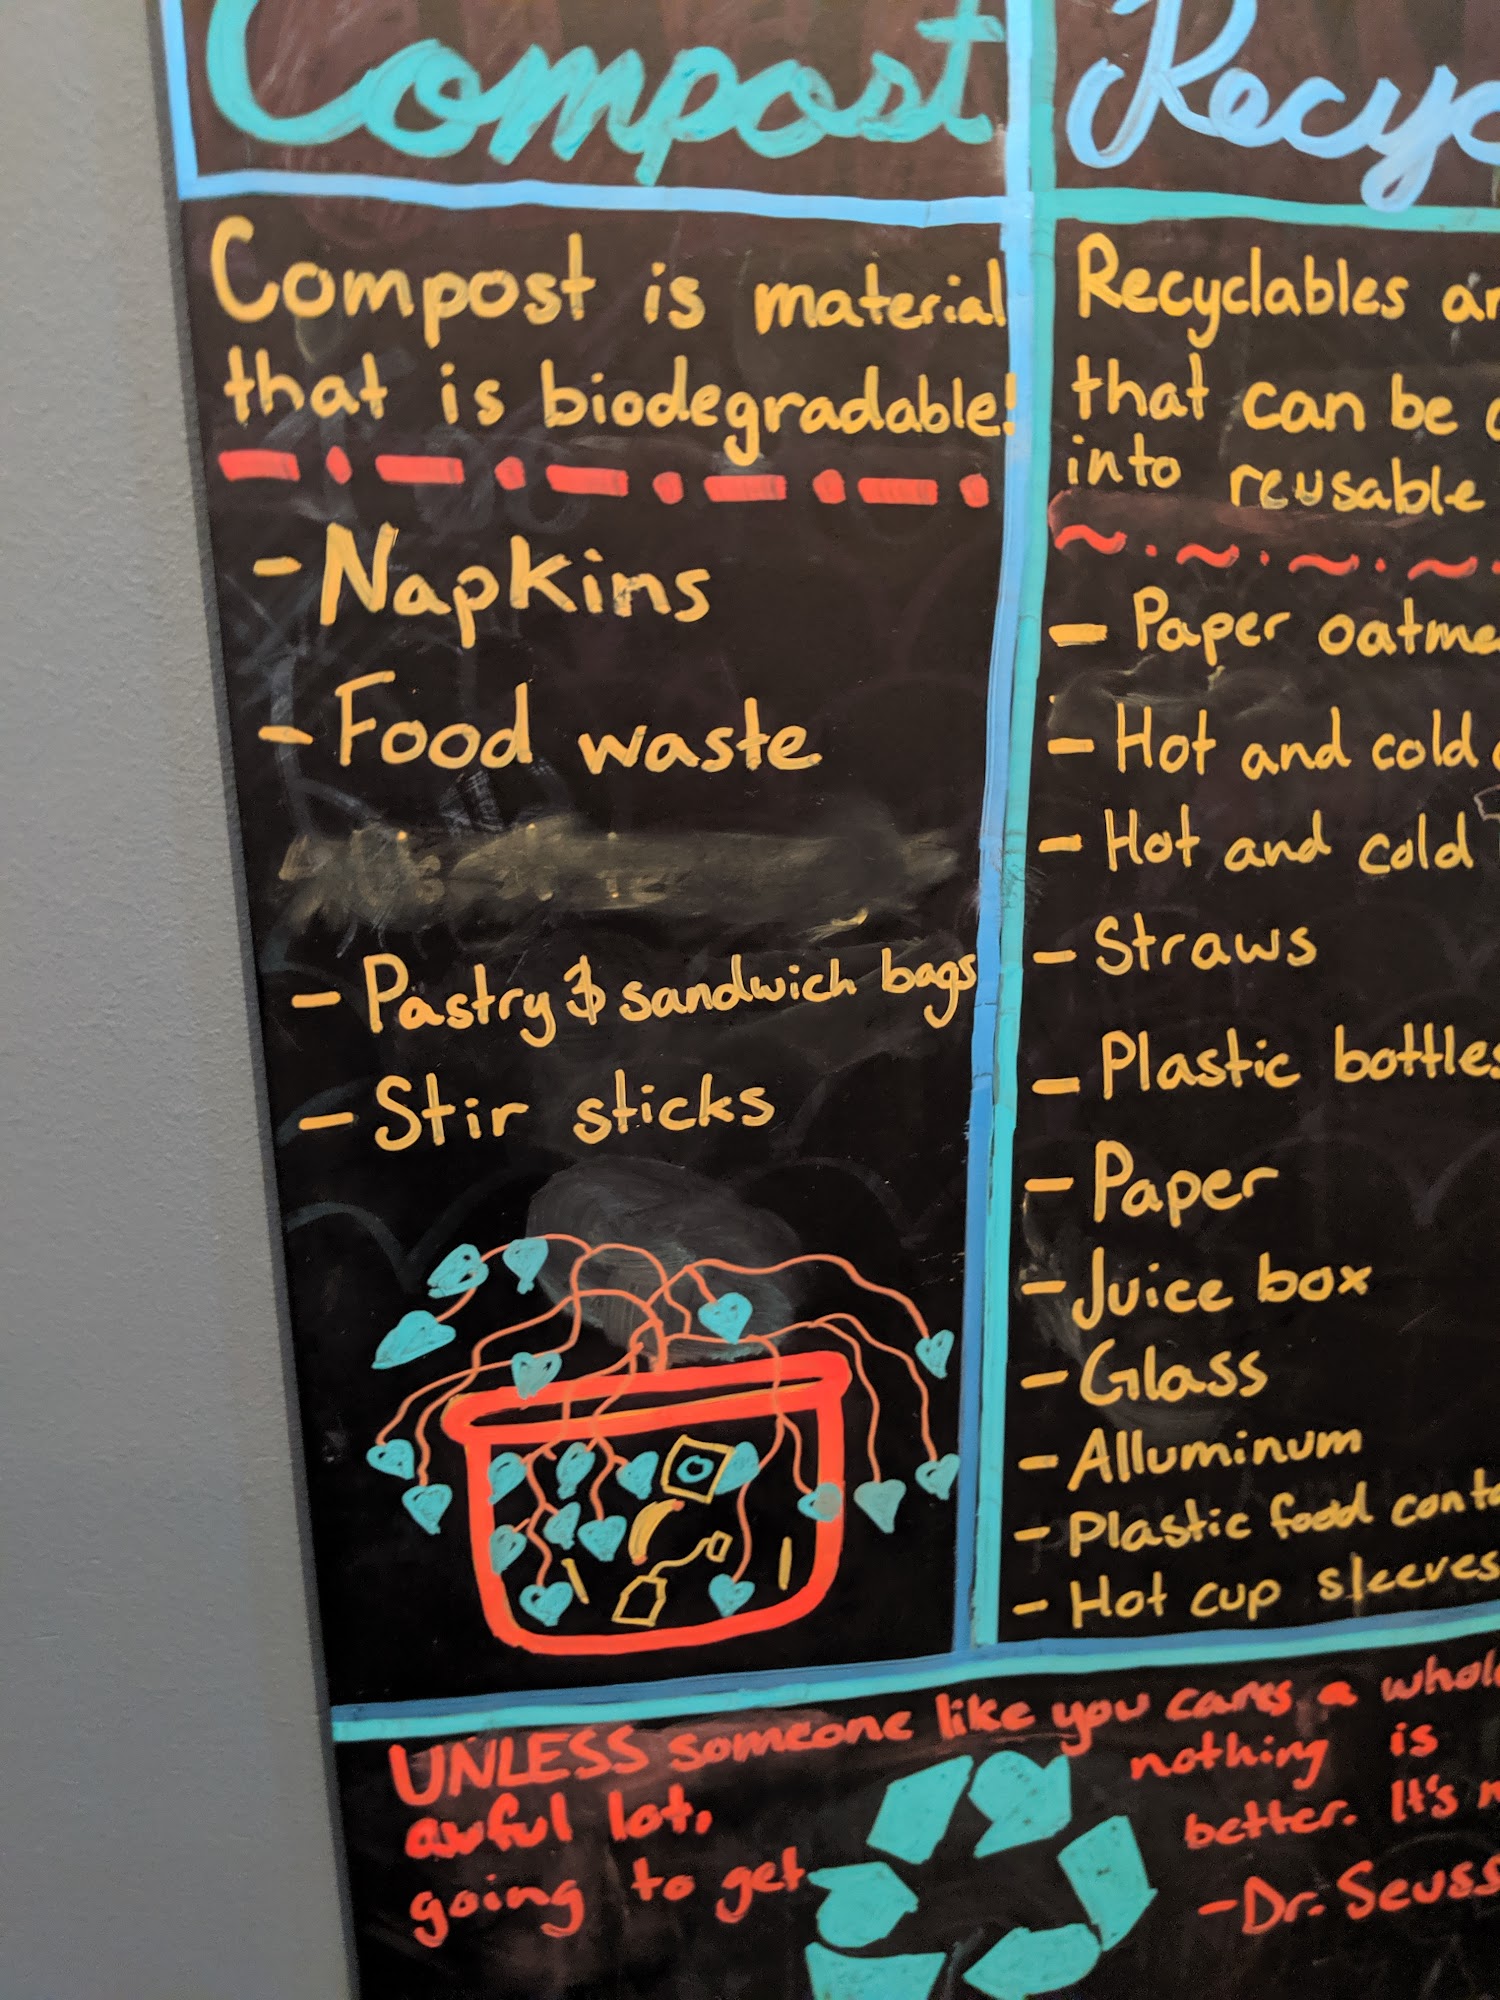 Compost
Compost is material
that is biodegradable!
- Napkins
- Food waste
- Pastry & sandwich bags
- Stir sticks
Recyc
Recyclables ar
that can be
into reusable
- Paper oatme
- Hot and cold
- Hot and cold
- Straws
- Plastic bottles
- Paper
- Juice box
- Glass
- Alluminum
- Plastic food conta
- Hot cup sleeves
UNLESS someone like you cares a whole
awful lot, nothing is
going to get better. It's n
- Dr. Seuss